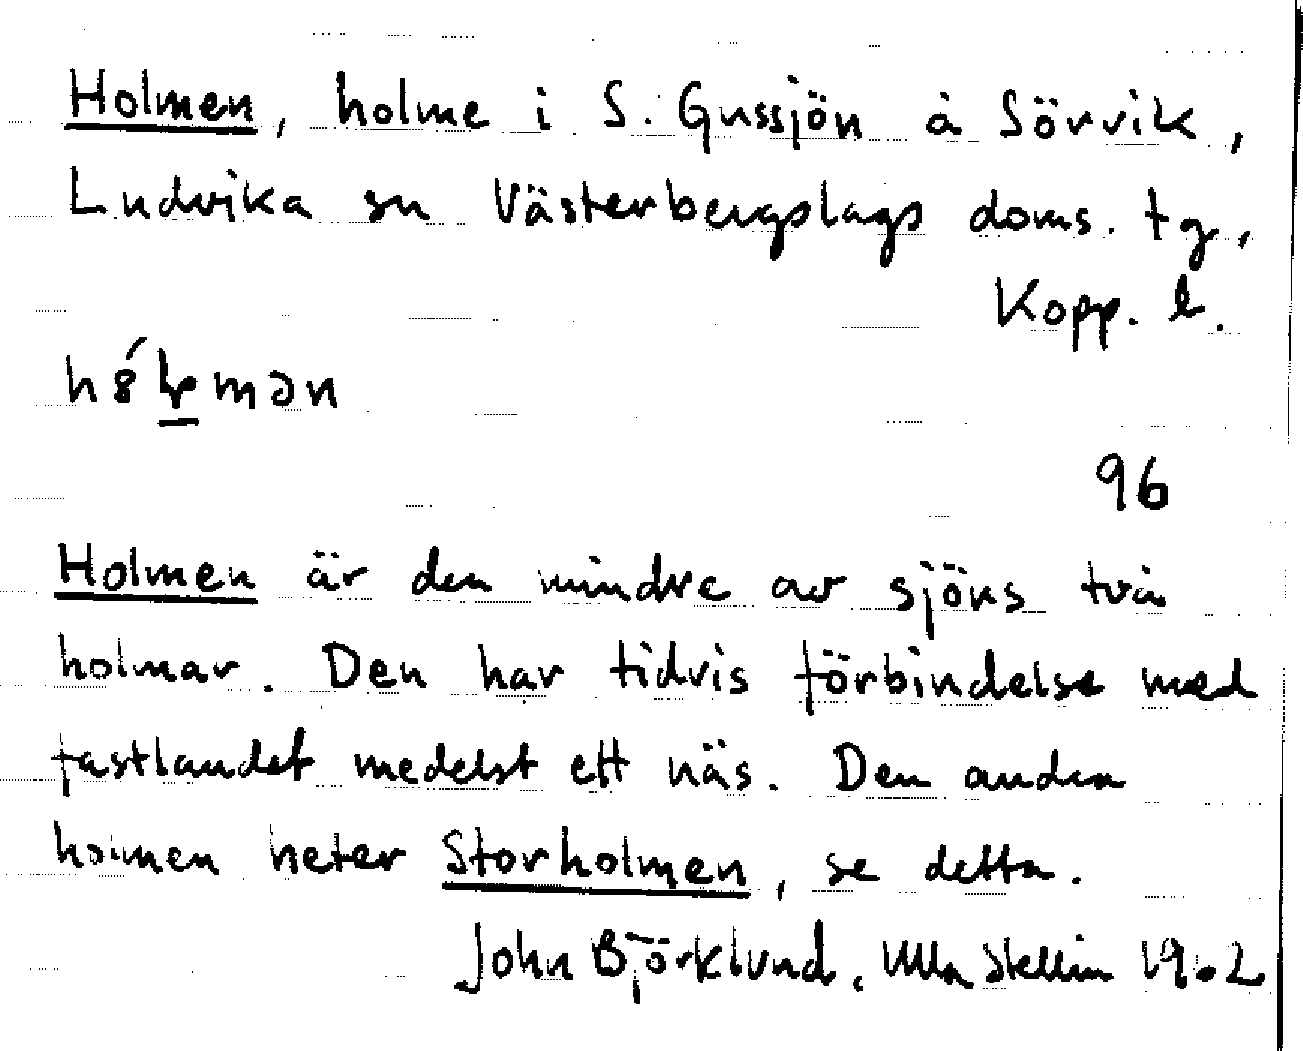 Holmen, holme i S. Gussjön å Sörvik,
Ludvika sn Västerbergslags doms. tg,
Kopp. l.
96
Holmen är den mindre av sjöns två
holmar. Den har tidvis förbindelse med
fastlandet medelst ett näs. Den andra
holmen heter Storholmen, se detta.
John Björklund, Ulla Stellin